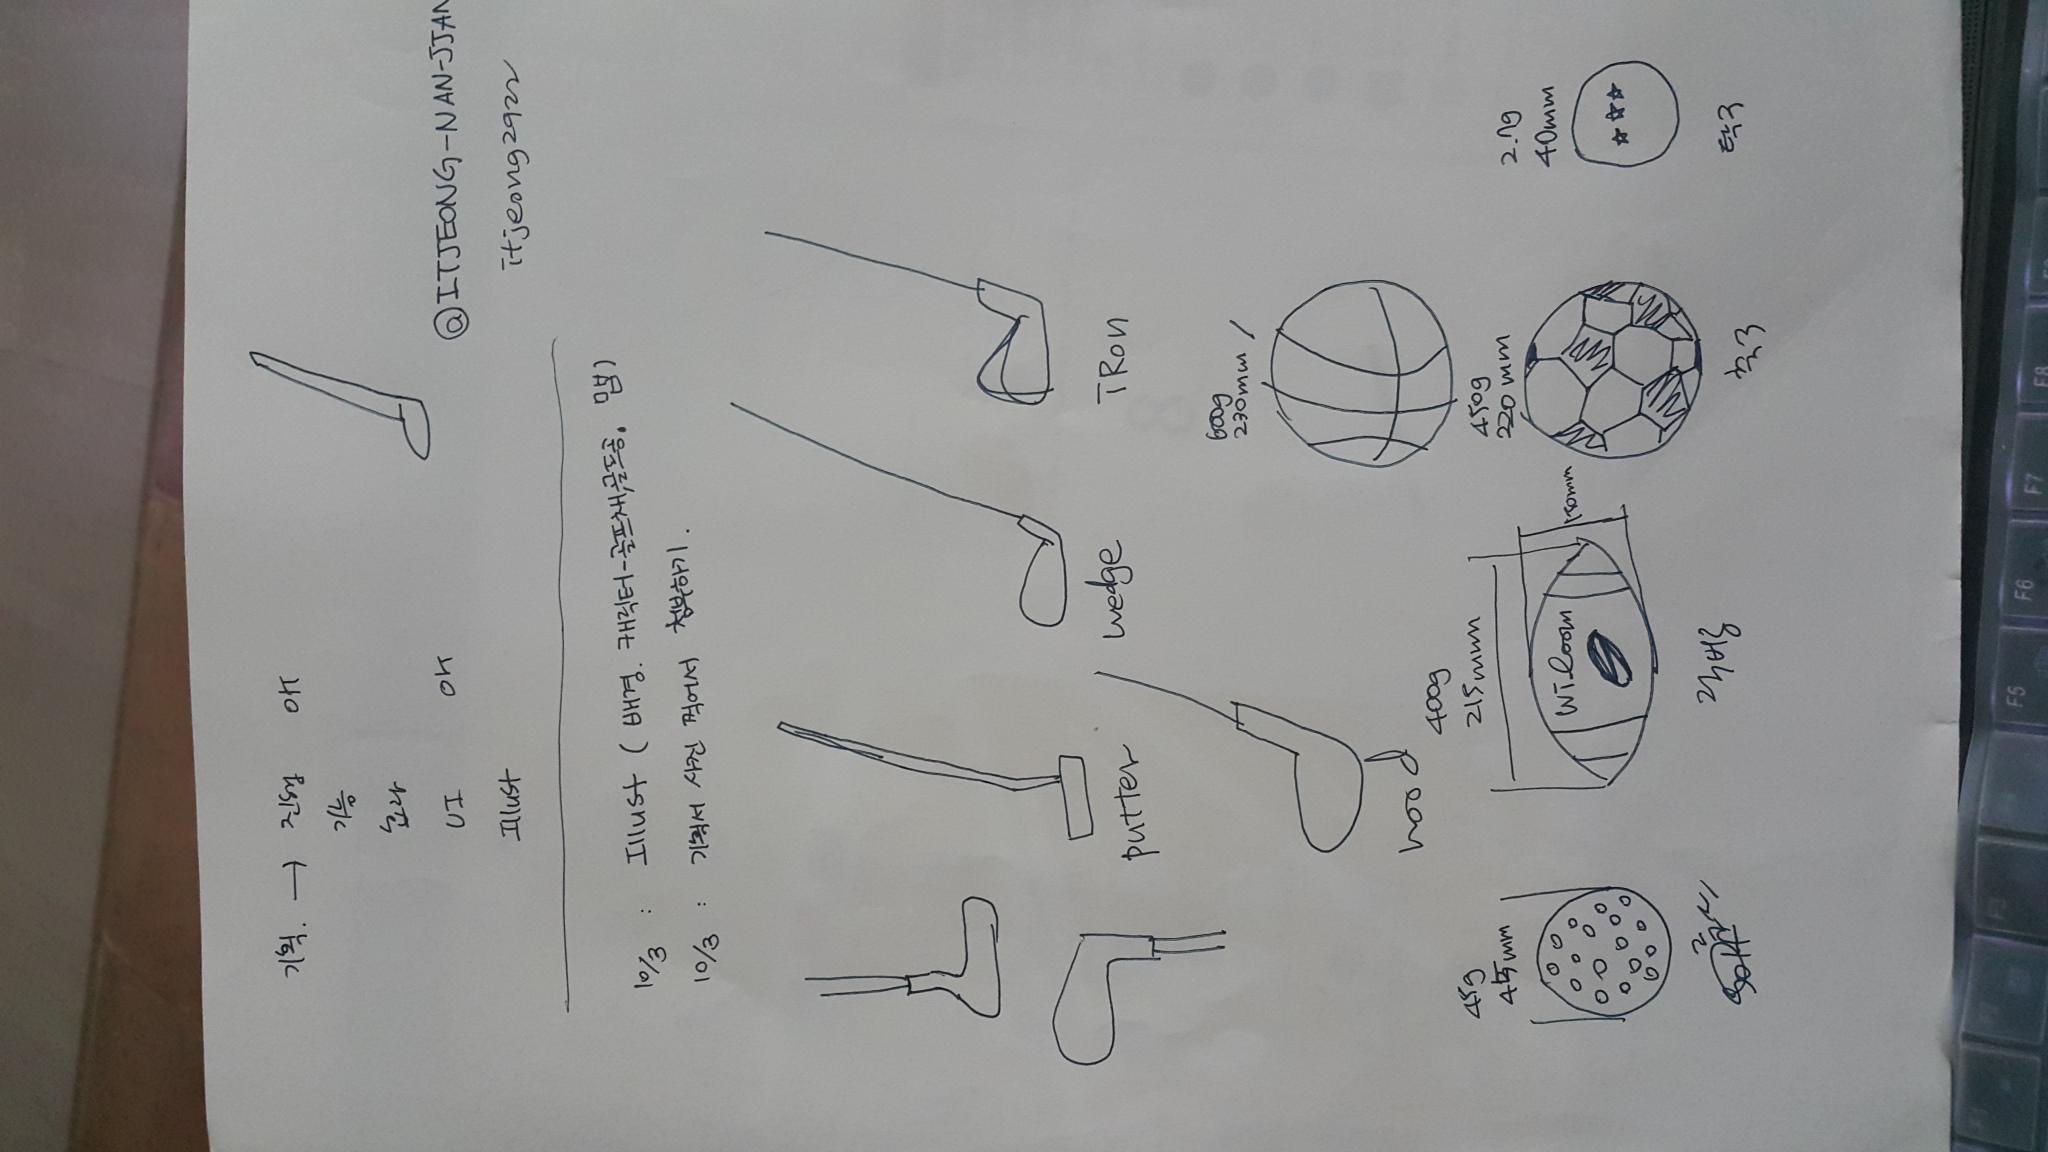 기획. → 진행 OK
기능
효과
UI OK
Illust
@ITJEONG-NAN-JJAN
itjeong2922
10/3 : Illust (배경. 캐릭터-골프채,골프공. 맵)
10/3 : 기획서 사진 찍어서 첨부하기.
putter
wedge
IRon
wood
600g
230mm
45g
45mm
400g
215mm
450g
220mm
2.7g
40mm
축구
탁구
F5
F6
F7
F8